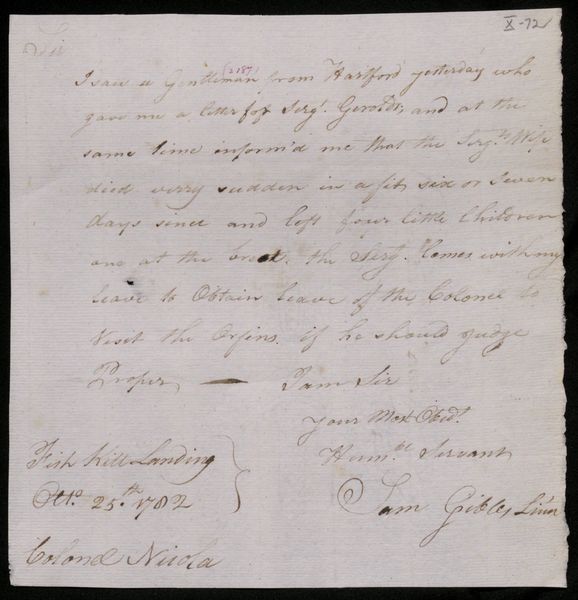 X-72
Sir
I saw a Gentleman from Hartford yesterday who
(2187)
gave me a letter for Sergt. and at the
same time inform'd me that the Sergts. Wife
died verry sudden in a fit, six or Seven
days since and left four little Children
one at the brest. the Sergt. Comes with my
leave to Obtain leave of the Colonel to
Visit the Orfins. if he should judge
Proper — I am Sir
your Most Obedt.
Humble Servant
Sam Gibbs, Lieut
Fish Kill Landing
Octo. 25th. 1782
Colonel Nicola